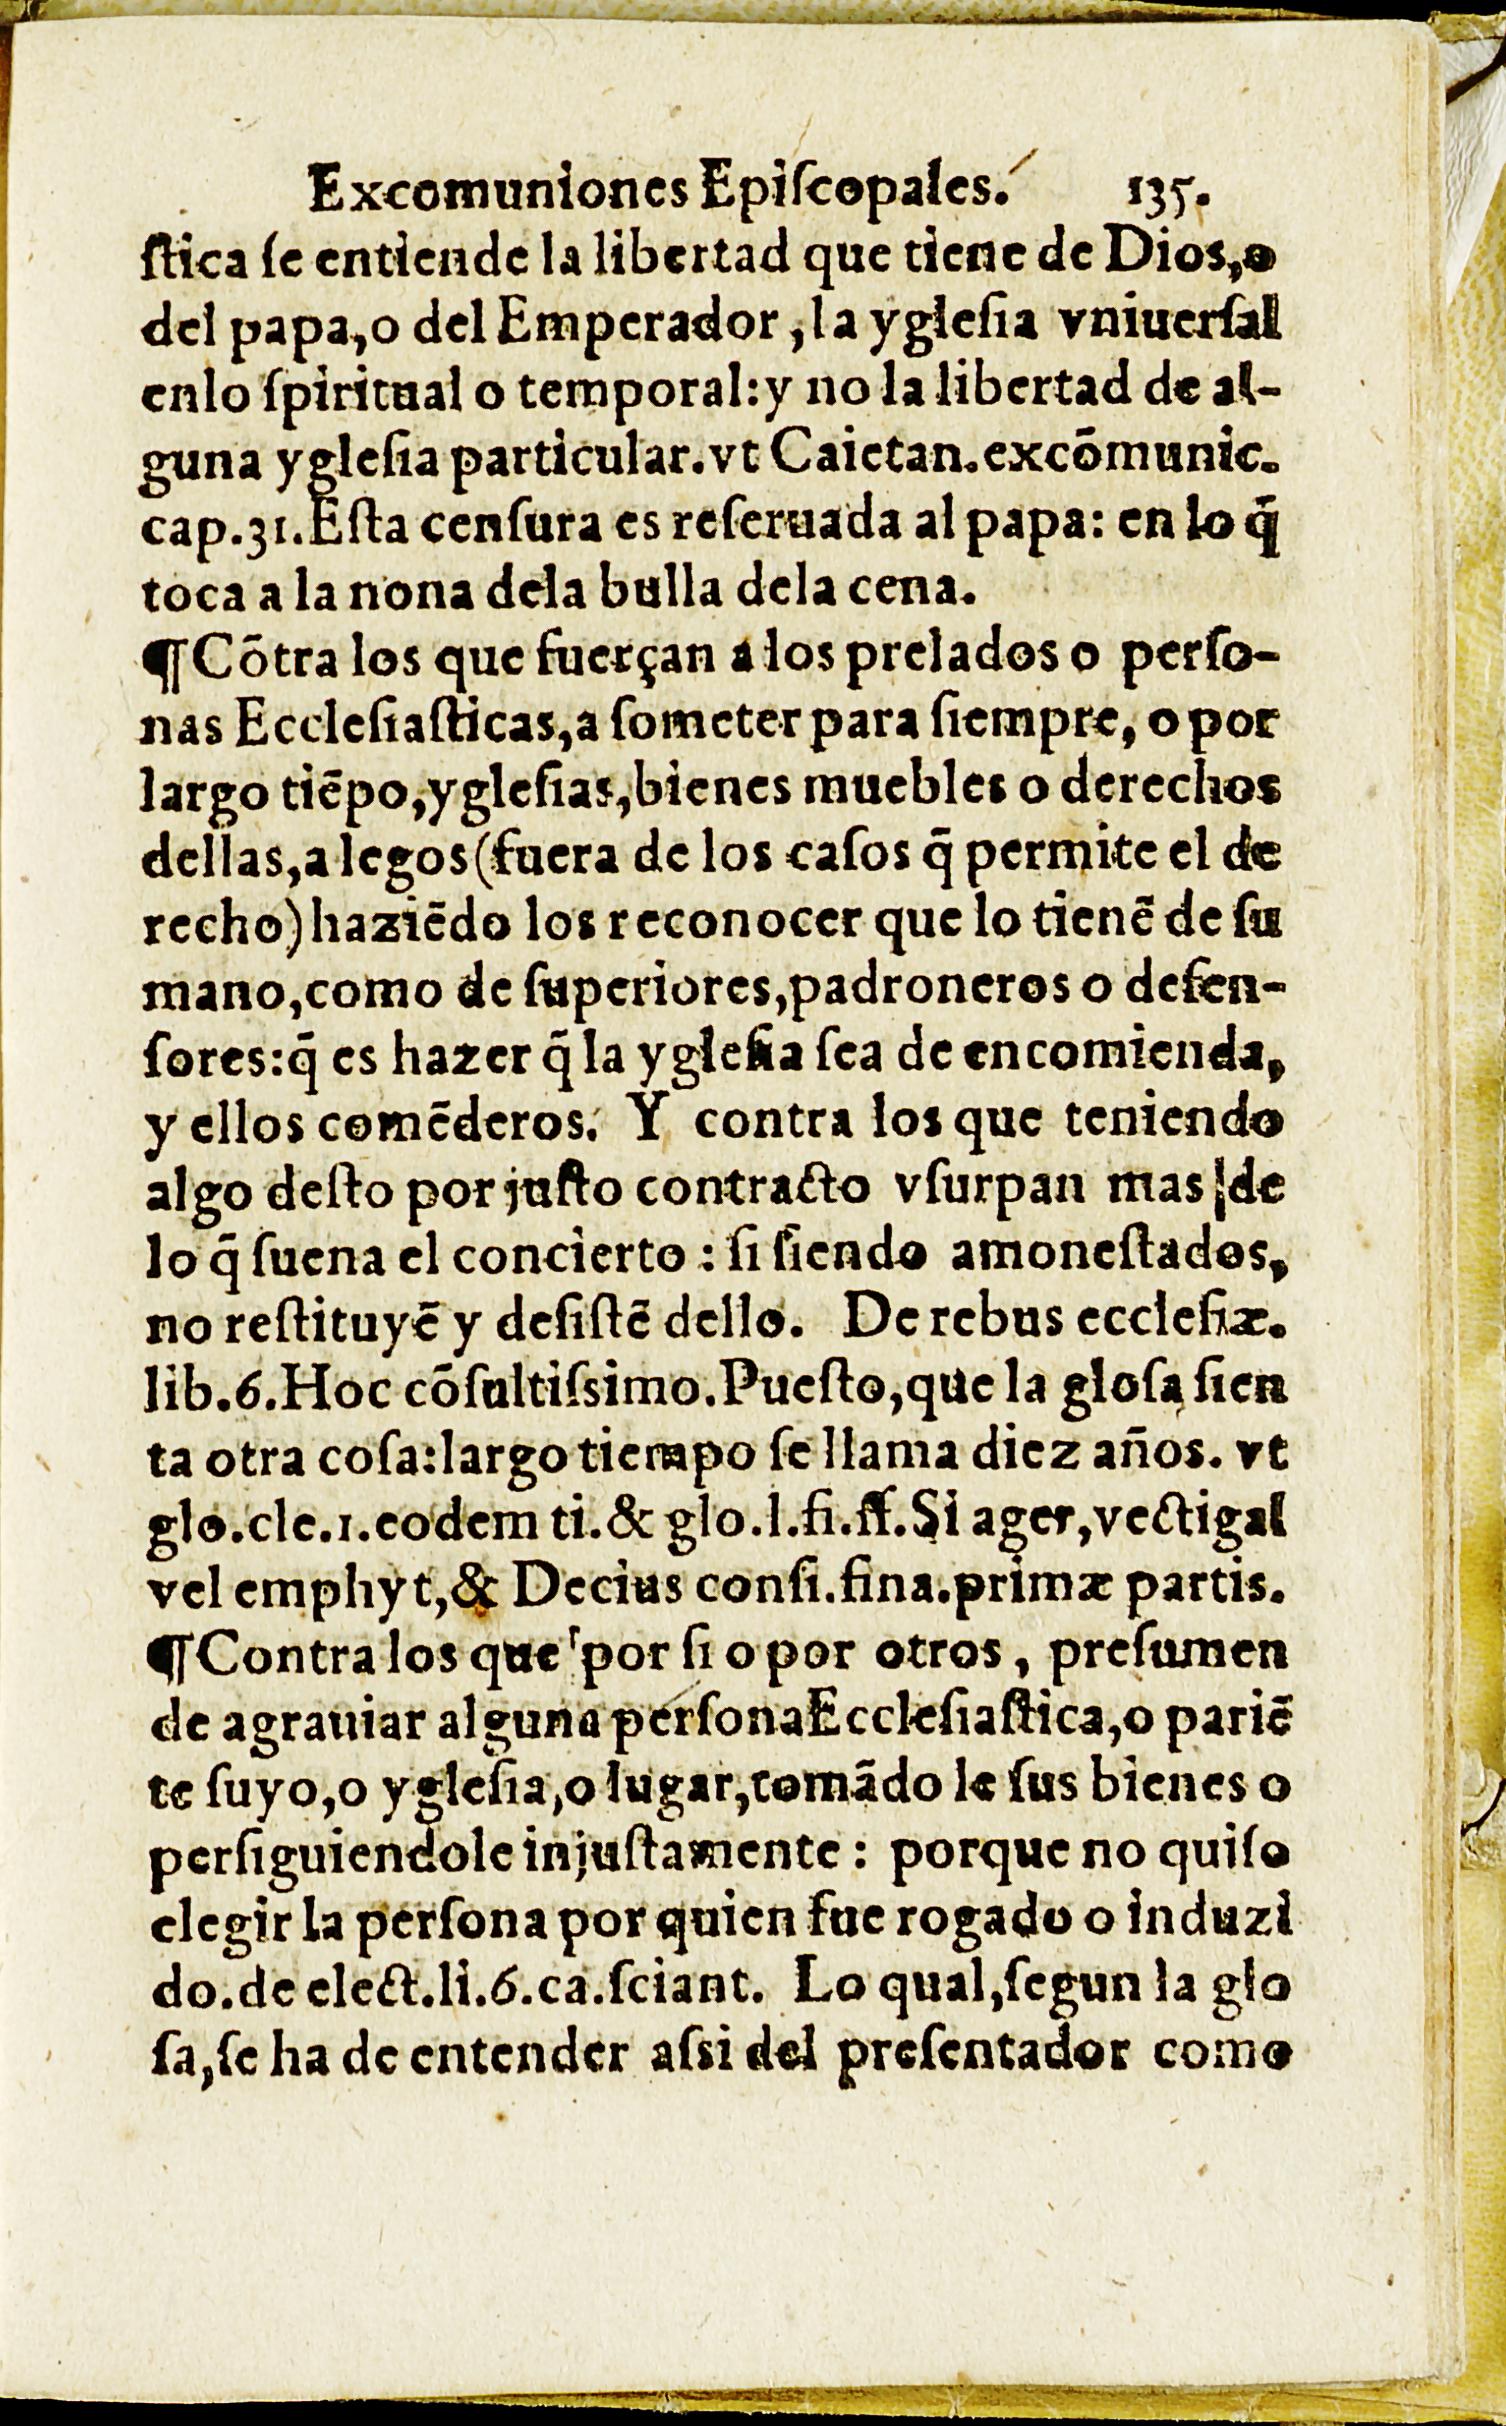 Excomuniones Epiſcopales. 135.
ſtica ſe entiende la libertad que tiene de Dios,o
del papa,o del Emperador, la ygleſia vniuerſal
enlo ſpiritual o temporal:y no la libertad de al-
guna ygleſia particular.vt Caietan.excōmunic.
cap.31.Eſta cenſura es reſeruada al papa: en lo q̄
toca a la nona dela bulla dela cena.
¶Cōtra los que fuerçan a los prelados o perſo-
nas Eccleſiaſticas,a ſometer para ſiempre, o por
largo tiēpo,ygleſias,bienes muebles o derechos
dellas,a legos(fuera de los caſos q̄ permite el de
recho)haziēdo los reconocer que lo tienē de ſu
mano,como de ſuperiores,padroneros o defen-
ſores:q̄ es hazer q̄ la ygleſia ſea de encomienda,
y ellos comēderos. Y contra los que teniendo
algo deſto por juſto contracto vſurpan mas de
lo q̄ ſuena el concierto : ſi ſiendo amoneſtados,
no reſtituyē y deſiſtē dello. De rebus eccleſiæ.
lib.6.Hoc cōſultiſsimo.Pueſto,que la gloſa ſien
ta otra coſa:largo tiempo ſe llama diez años. vt
glo.cle.1.eodem ti.& glo.l.fi.ff.Si ager,vectigal
vel emphyt,& Decius conſi.fina.primæ partis.
¶Contra los que por ſi o por otros, preſumen
de agrauiar alguna perſonaEccleſiaſtica,o pariē
te ſuyo,o ygleſia,o lugar,tomādo le ſus bienes o
perſiguiendole injuſtamente : porque no quiſo
elegir la perſona por quien fue rogado o induzi
do.de elect.li.6.ca.ſciant. Lo qual,ſegun la glo
ſa,ſe ha de entender aſsi del preſentador como